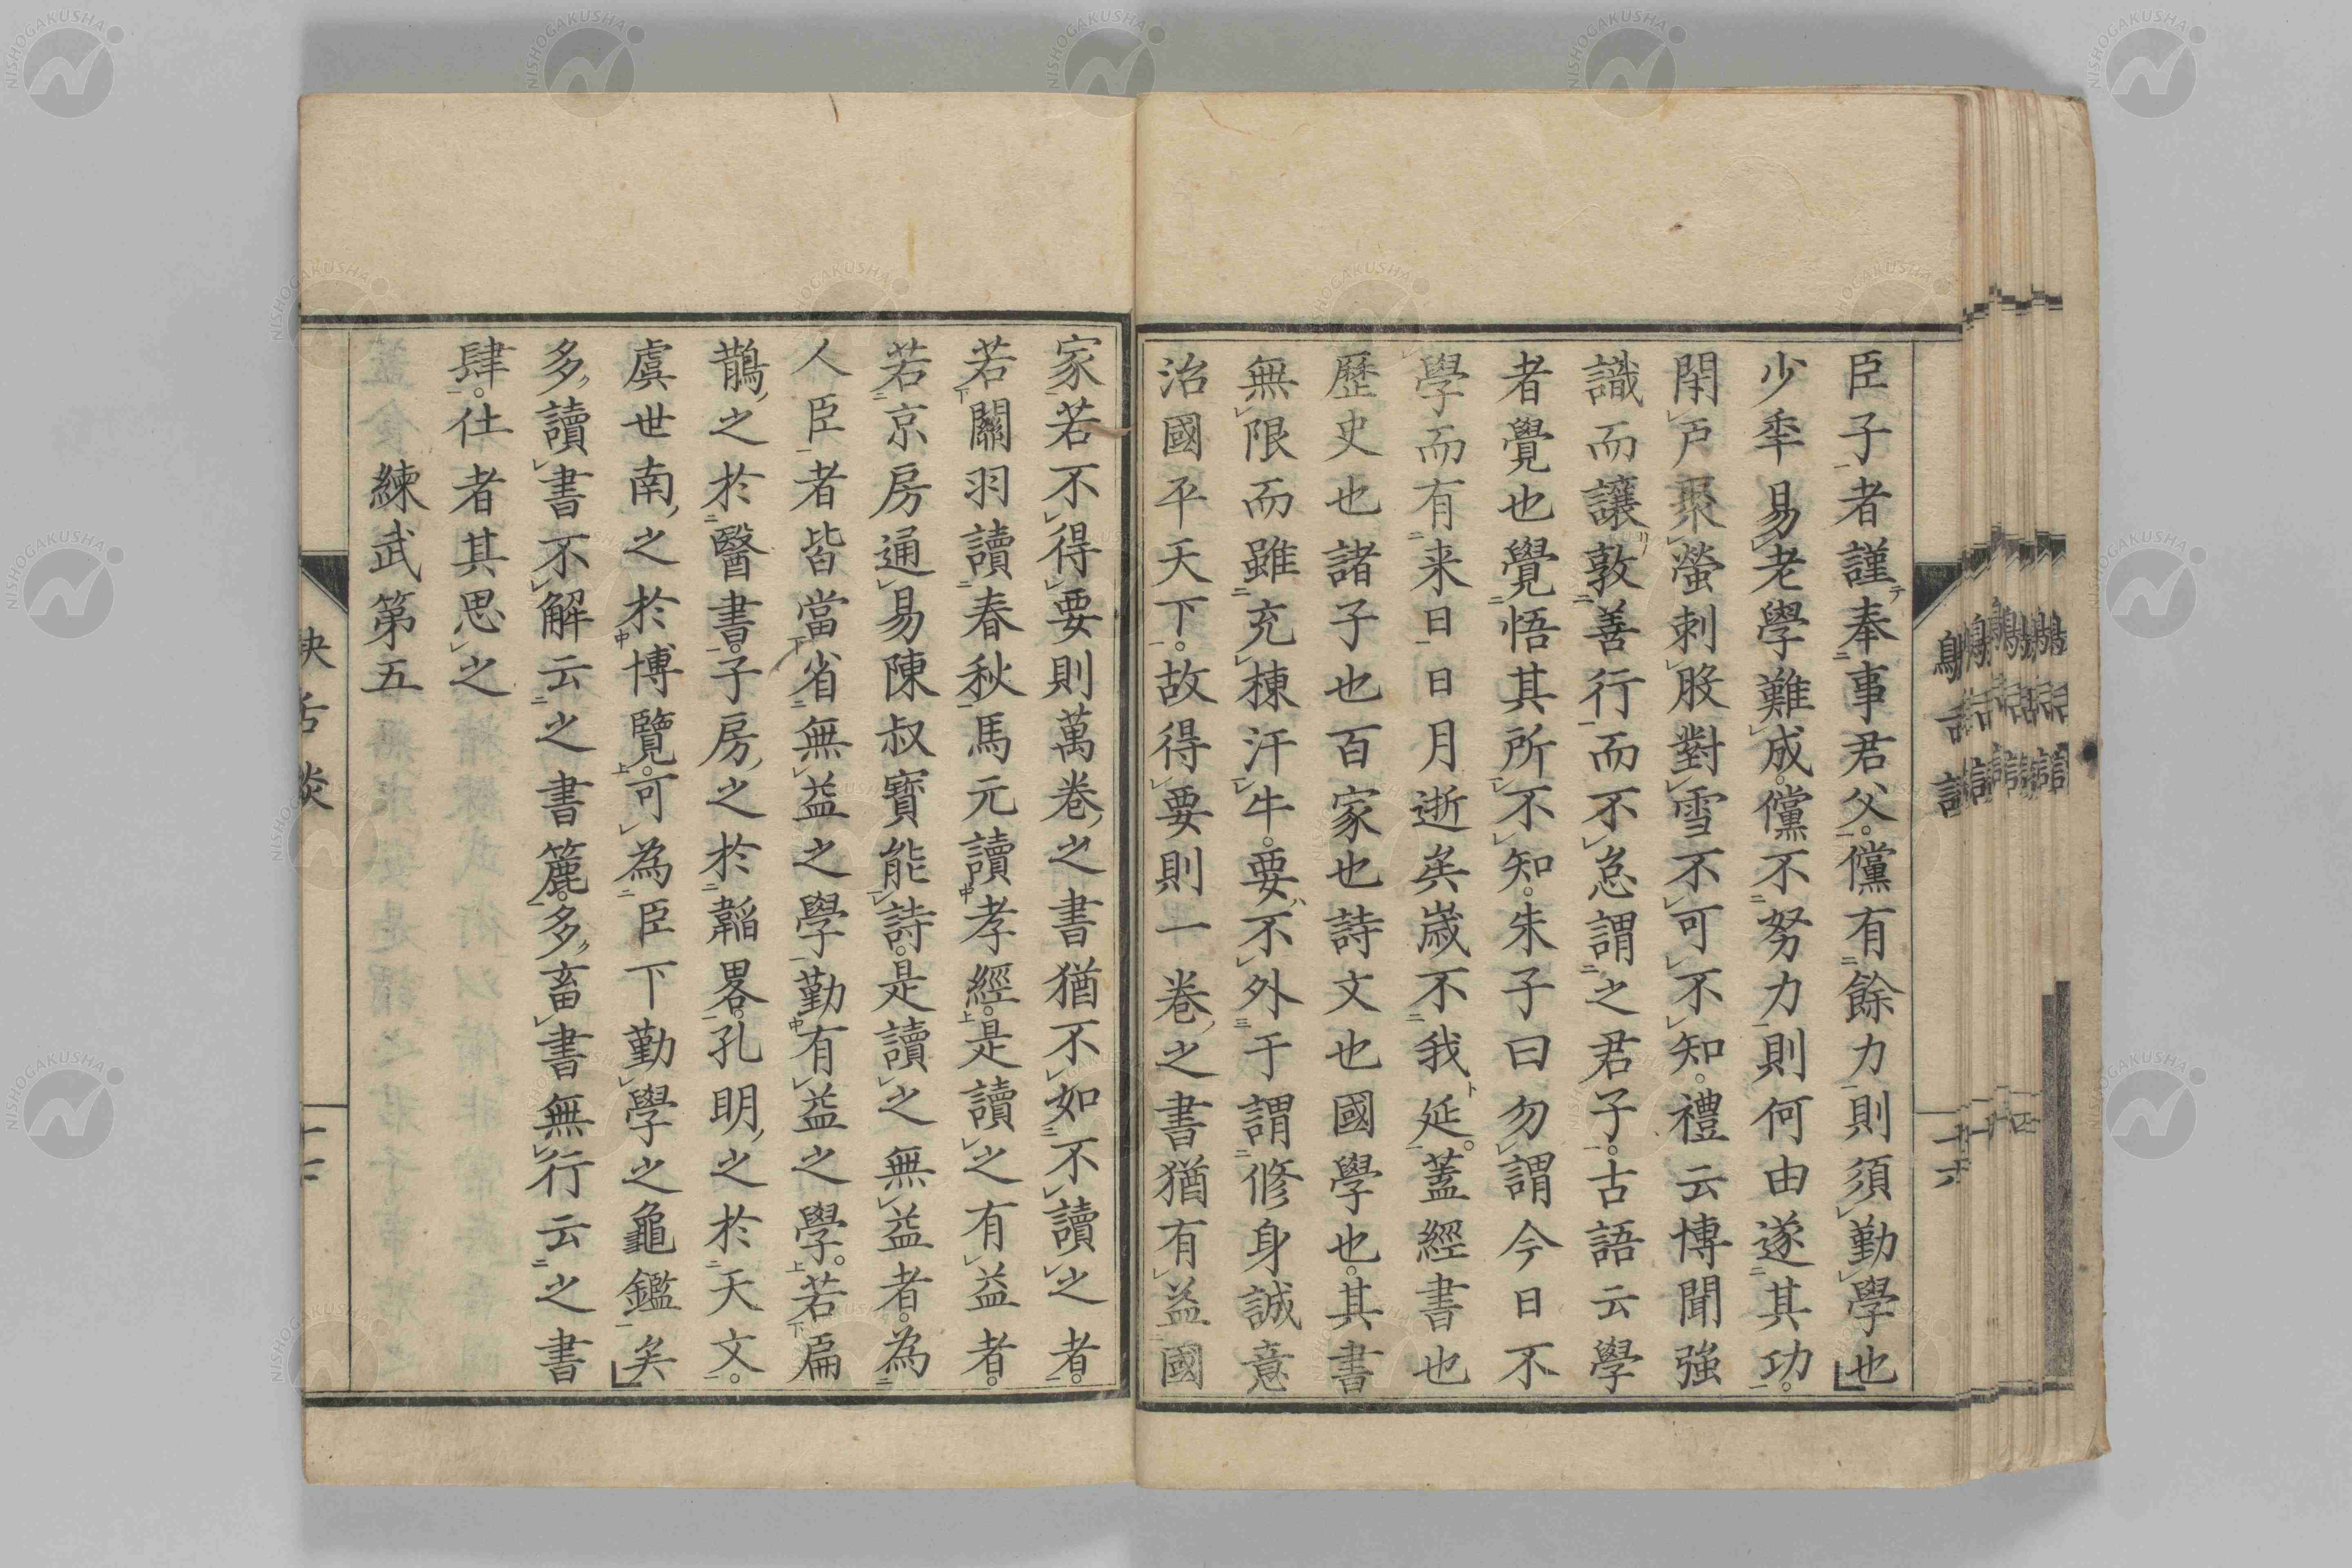 臣子者謹テ奉事君父。儻有餘力則須勤學也
少年易老學難成。儻不努力則何由遂其功。
閉戸聚螢刺股對雪不可不知。禮云博聞強
識而讓リ敦善行而不怠謂之君子。古語云學
者覺也覺悟其所不知。朱子曰勿謂今日不
學而有来日日月逝矣歳不我ト延。蓋經書也
歴史也諸子也百家也詩文也國學也。其書
無限而雖充棟汗牛。要ハ不外于謂修身誠意
治國平天下。故得要則一巻ノ之書猶有益國
家若不得要則萬巻ノ之書猶不如不讀之者。
若關羽讀春秋馬元讀孝經。是讀之有益者。
若京房通易陳叔寶能詩。是讀之無益者。為
人臣者皆當省無益之學勤有益之學。若扁
鵲ノ之於醫書。子房ノ之於韜畧。孔明ノ之於天文。
虞世南ノ之於博覽。可為臣下勤學之龜鑑矣
多ク讀書不解云之書簏。多ク畜書無行云之書
肆。仕者其思之
練武第五
鴃舌談
十七
十六
NISHOGAKUSHA